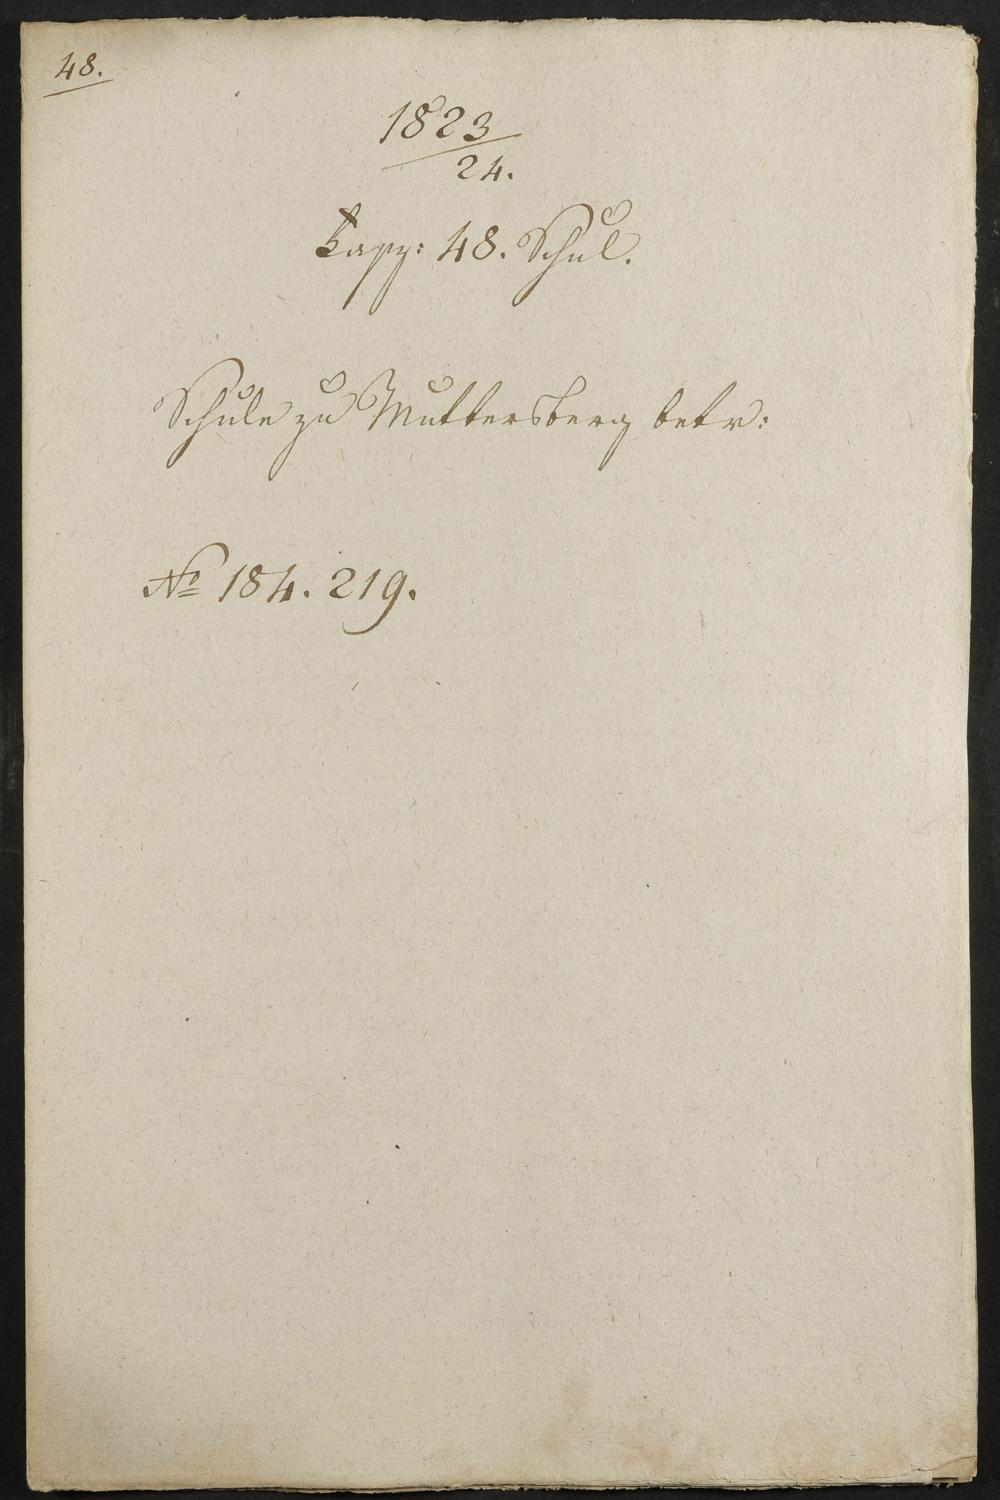 48.
1823
24.
Fasz: 48. Schul.
Schule zu Muttersberg betr:
No 184. 219.